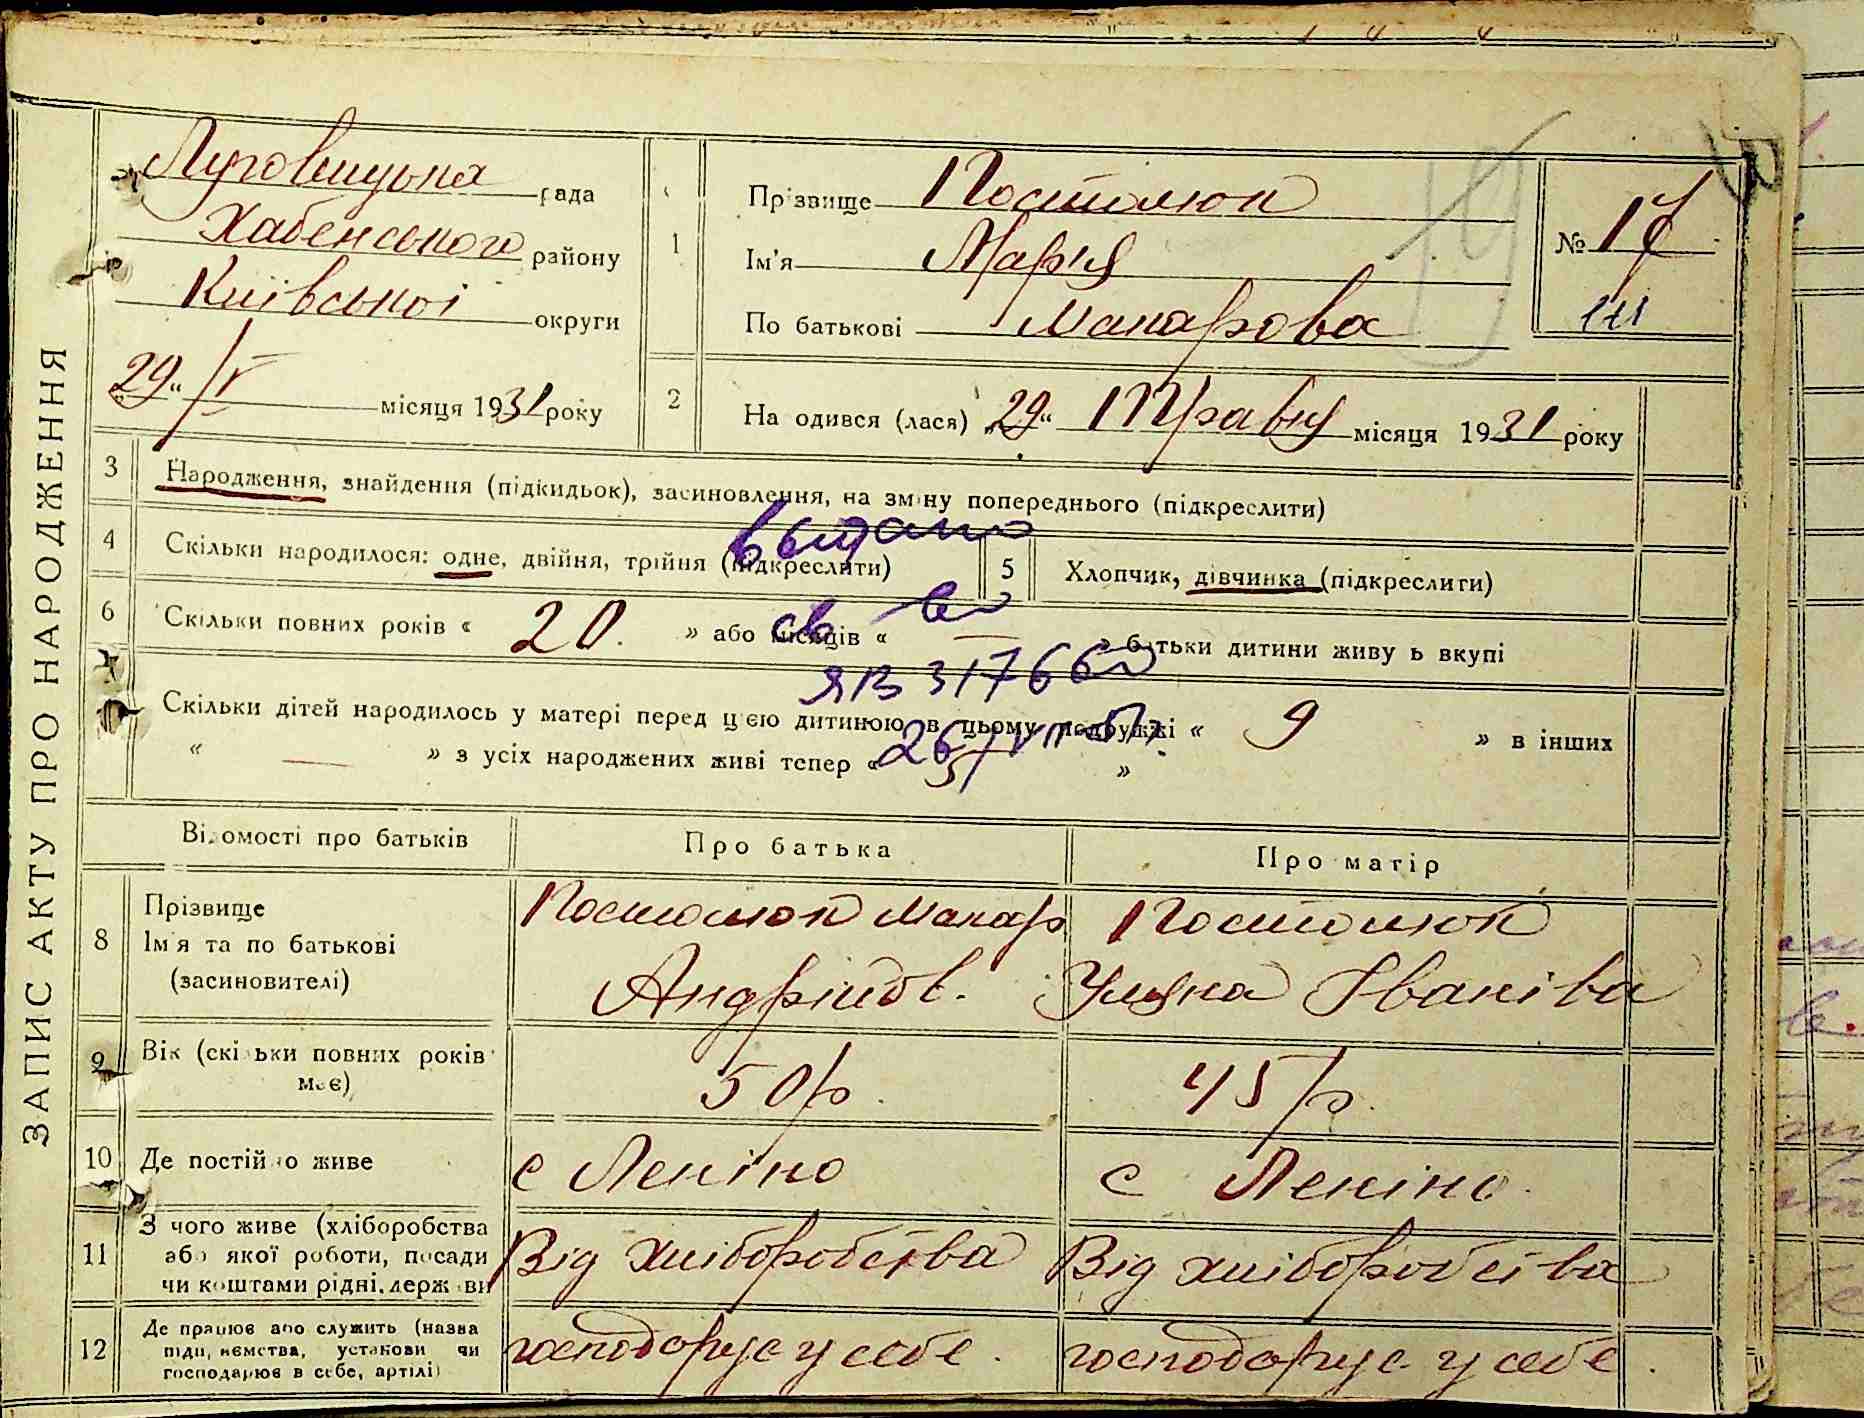 ЗАПИС АКТУ ПРО НАРОДЖЕННЯ
Луговицька рада
Хабенського району
Київської округи
„29“ /V місяця 1931 року
1
Прізвище Постолюк
Ім'я Марія
По батькові Макарова
№ 17
2
Народився (лася) „29“ Травня місяця 1931 року
3
Народження, знайдення (підкидьок), засиновлення, на зміну попереднього (підкреслити)
4
Скільки народилося: одне, двійня, трійня (підкреслити)
5
Хлопчик, дівчинка (підкреслити)
выдано
6
Скільки повних років « 20. » або місяців « — » батьки дитини живуть вкупі
св во
ЯВ 317660
7
Скільки дітей народилось у матері перед цією дитиною в цьому подружжі « 9 » в інших
« — » з усіх народжених живі тепер « 5 »
Відомості про батьків
Про батька
Про матір
8
Прізвище
Ім'я та по батькові
(засиновителі)
Постолюк Макар
Андрійов.
Постолюк
Уляна Іванівна
9
Вік (скільки повних років
має)
50 р.
45 р.
10
Де постійно живе
с Леніно
с Леніно.
11
З чого живе (хліборобства
або якої роботи, посади
чи коштами рідні, держави
Від хліборобства
Від хліборобства
12
Де працює або служить (назва
підприємства, установи чи
господарює в себе, артілі)
господорує у себе.
господорує у себе.